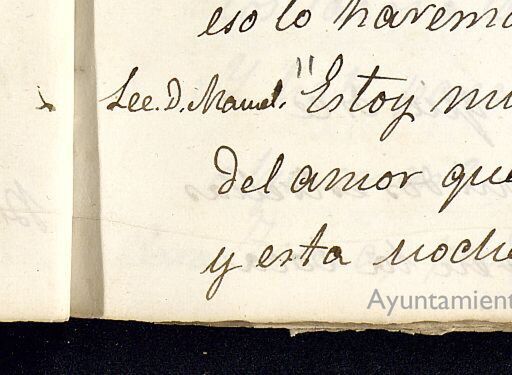 eso lo harem
Lee. D. Manuel. "Estoy
del amor que
y esta noche
Ayuntamient